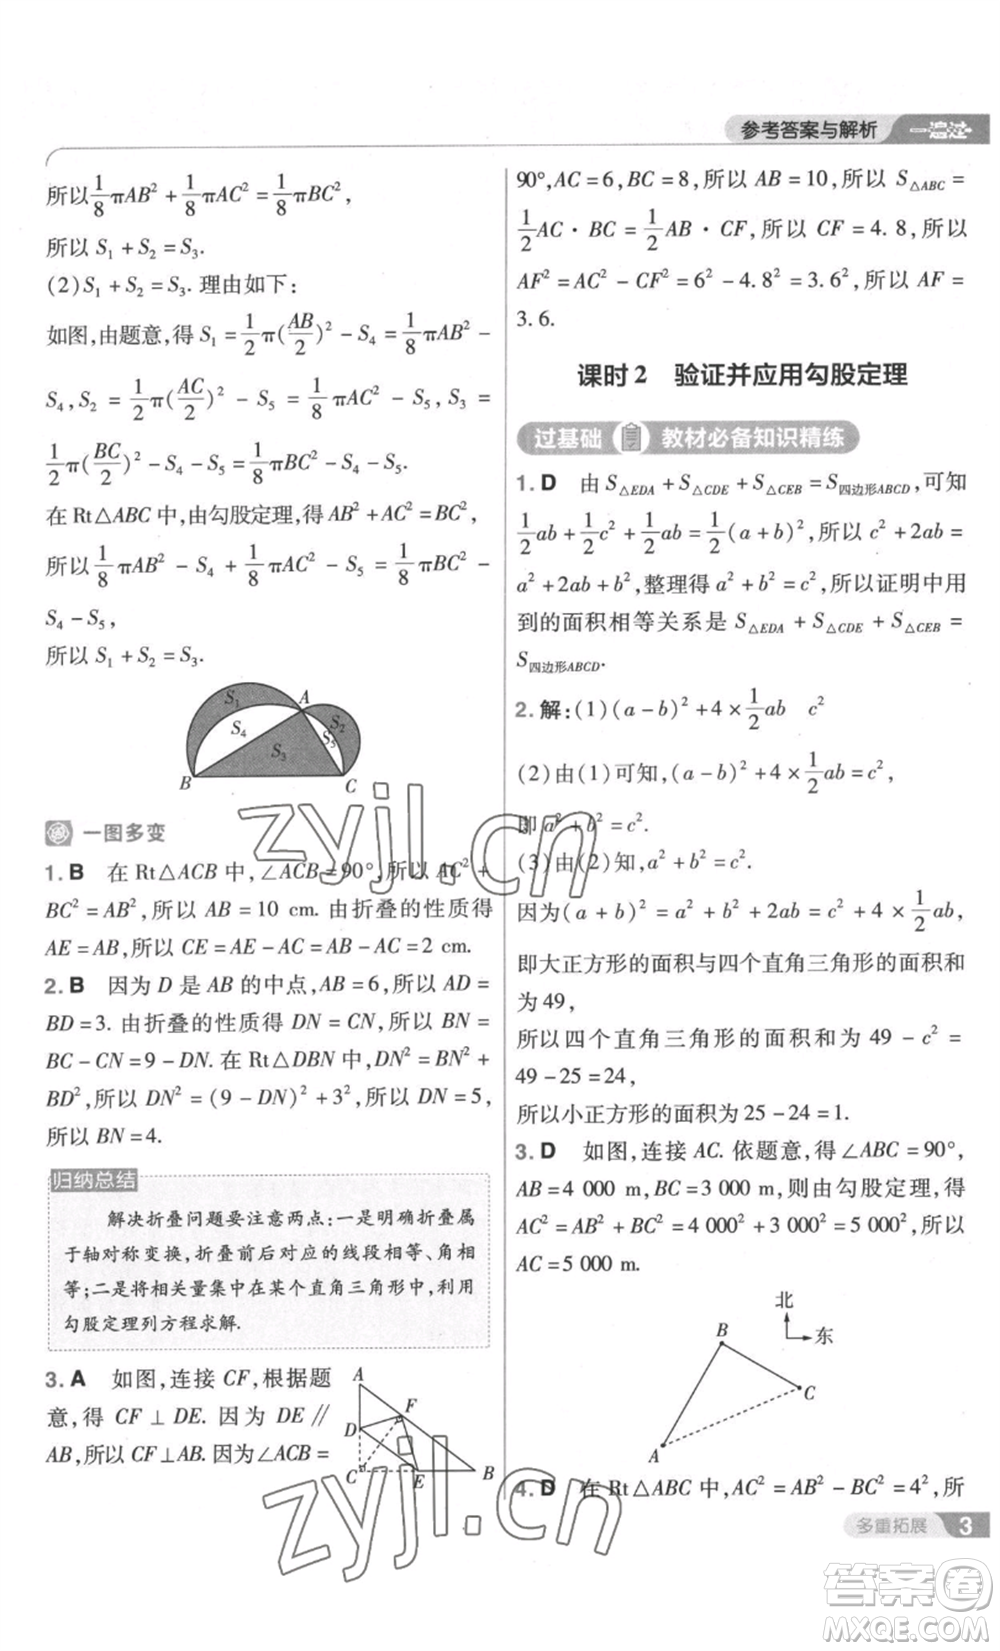 参考答案与解析 一遍过
所以1/8πAB²+1/8πAC²=1/8πBC²,
所以 S₁+S₂=S₃.
(2)S₁+S₂=S₃.理由如下:
如图,由题意,得 S₁=1/2π(AB/2)²-S₄=1/8πAB²-
S₄,S₂=1/2π(AC/2)²-S₅=1/8πAC²-S₅,S₃=
1/2π(BC/2)²-S₄-S₅=1/8πBC²-S₄-S₅.
在 Rt△ABC 中,由勾股定理,得 AB²+AC²=BC²,
所以1/8πAB²-S₄+1/8πAC²-S₅=1/8πBC²-
S₄-S₅,
所以 S₁+S₂=S₃.
S₁ A S₂ S₄ S₅ S₃ B C
一图多变
1. B 在 Rt△ACB 中,∠ACB=90°,所以 AC²+
BC²=AB²,所以 AB=10 cm.由折叠的性质得
AE=AB,所以 CE=AE-AC=AB-AC=2 cm.
2. B 因为 D 是 AB 的中点,AB=6,所以 AD=
BD=3.由折叠的性质得 DN=CN,所以 BN=
BC-CN=9-DN.在 Rt△DBN 中,DN²=BN²+
BD²,所以 DN²=(9-DN)²+3²,所以 DN=5,
所以 BN=4.
归纳总结
解决折叠问题要注意两点:一是明确折叠属
于轴对称变换,折叠前后对应的线段相等、角相
等;二是将相关量集中在某个直角三角形中,利用
勾股定理列方程求解.
3. A 如图,连接 CF,根据题
意,得 CF⊥DE.因为 DE∥
AB,所以 CF⊥AB.因为∠ACB=
A F D C E B
90°,AC=6,BC=8,所以 AB=10,所以 S△ABC=
1/2AC·BC=1/2AB·CF,所以 CF=4.8,所以
AF²=AC²-CF²=6²-4.8²=3.6²,所以 AF=
3.6.
课时2 验证并应用勾股定理
过基础 教材必备知识精练
1. D 由 S△EDA+S△CDE+S△CEB=S四边形ABCD,可知
1/2ab+1/2c²+1/2ab=1/2(a+b)²,所以 c²+2ab=
a²+2ab+b²,整理得 a²+b²=c²,所以证明中用
到的面积相等关系是 S△EDA+S△CDE+S△CEB=
S四边形ABCD.
2. 解:(1)(a-b)²+4×1/2ab c²
(2)由(1)可知,(a-b)²+4×1/2ab=c²,
即 a²+b²=c².
(3)由(2)知,a²+b²=c².
因为(a+b)²=a²+b²+2ab=c²+4×1/2ab,
即大正方形的面积与四个直角三角形的面积和
为49,
所以四个直角三角形的面积和为 49-c²=
49-25=24,
所以小正方形的面积为25-24=1.
3. D 如图,连接 AC.依题意,得∠ABC=90°,
AB=4 000 m,BC=3 000 m,则由勾股定理,得
AC²=AB²+BC²=4 000²+3 000²=5 000²,所以
AC=5 000 m.
北
B 东
C
A
4. D 在 Rt△ABC 中,AC²=AB²-BC²=4²,所
多重拓展 3
zyjl.cn
zyjl.cn
答案圈
MXQE.COM